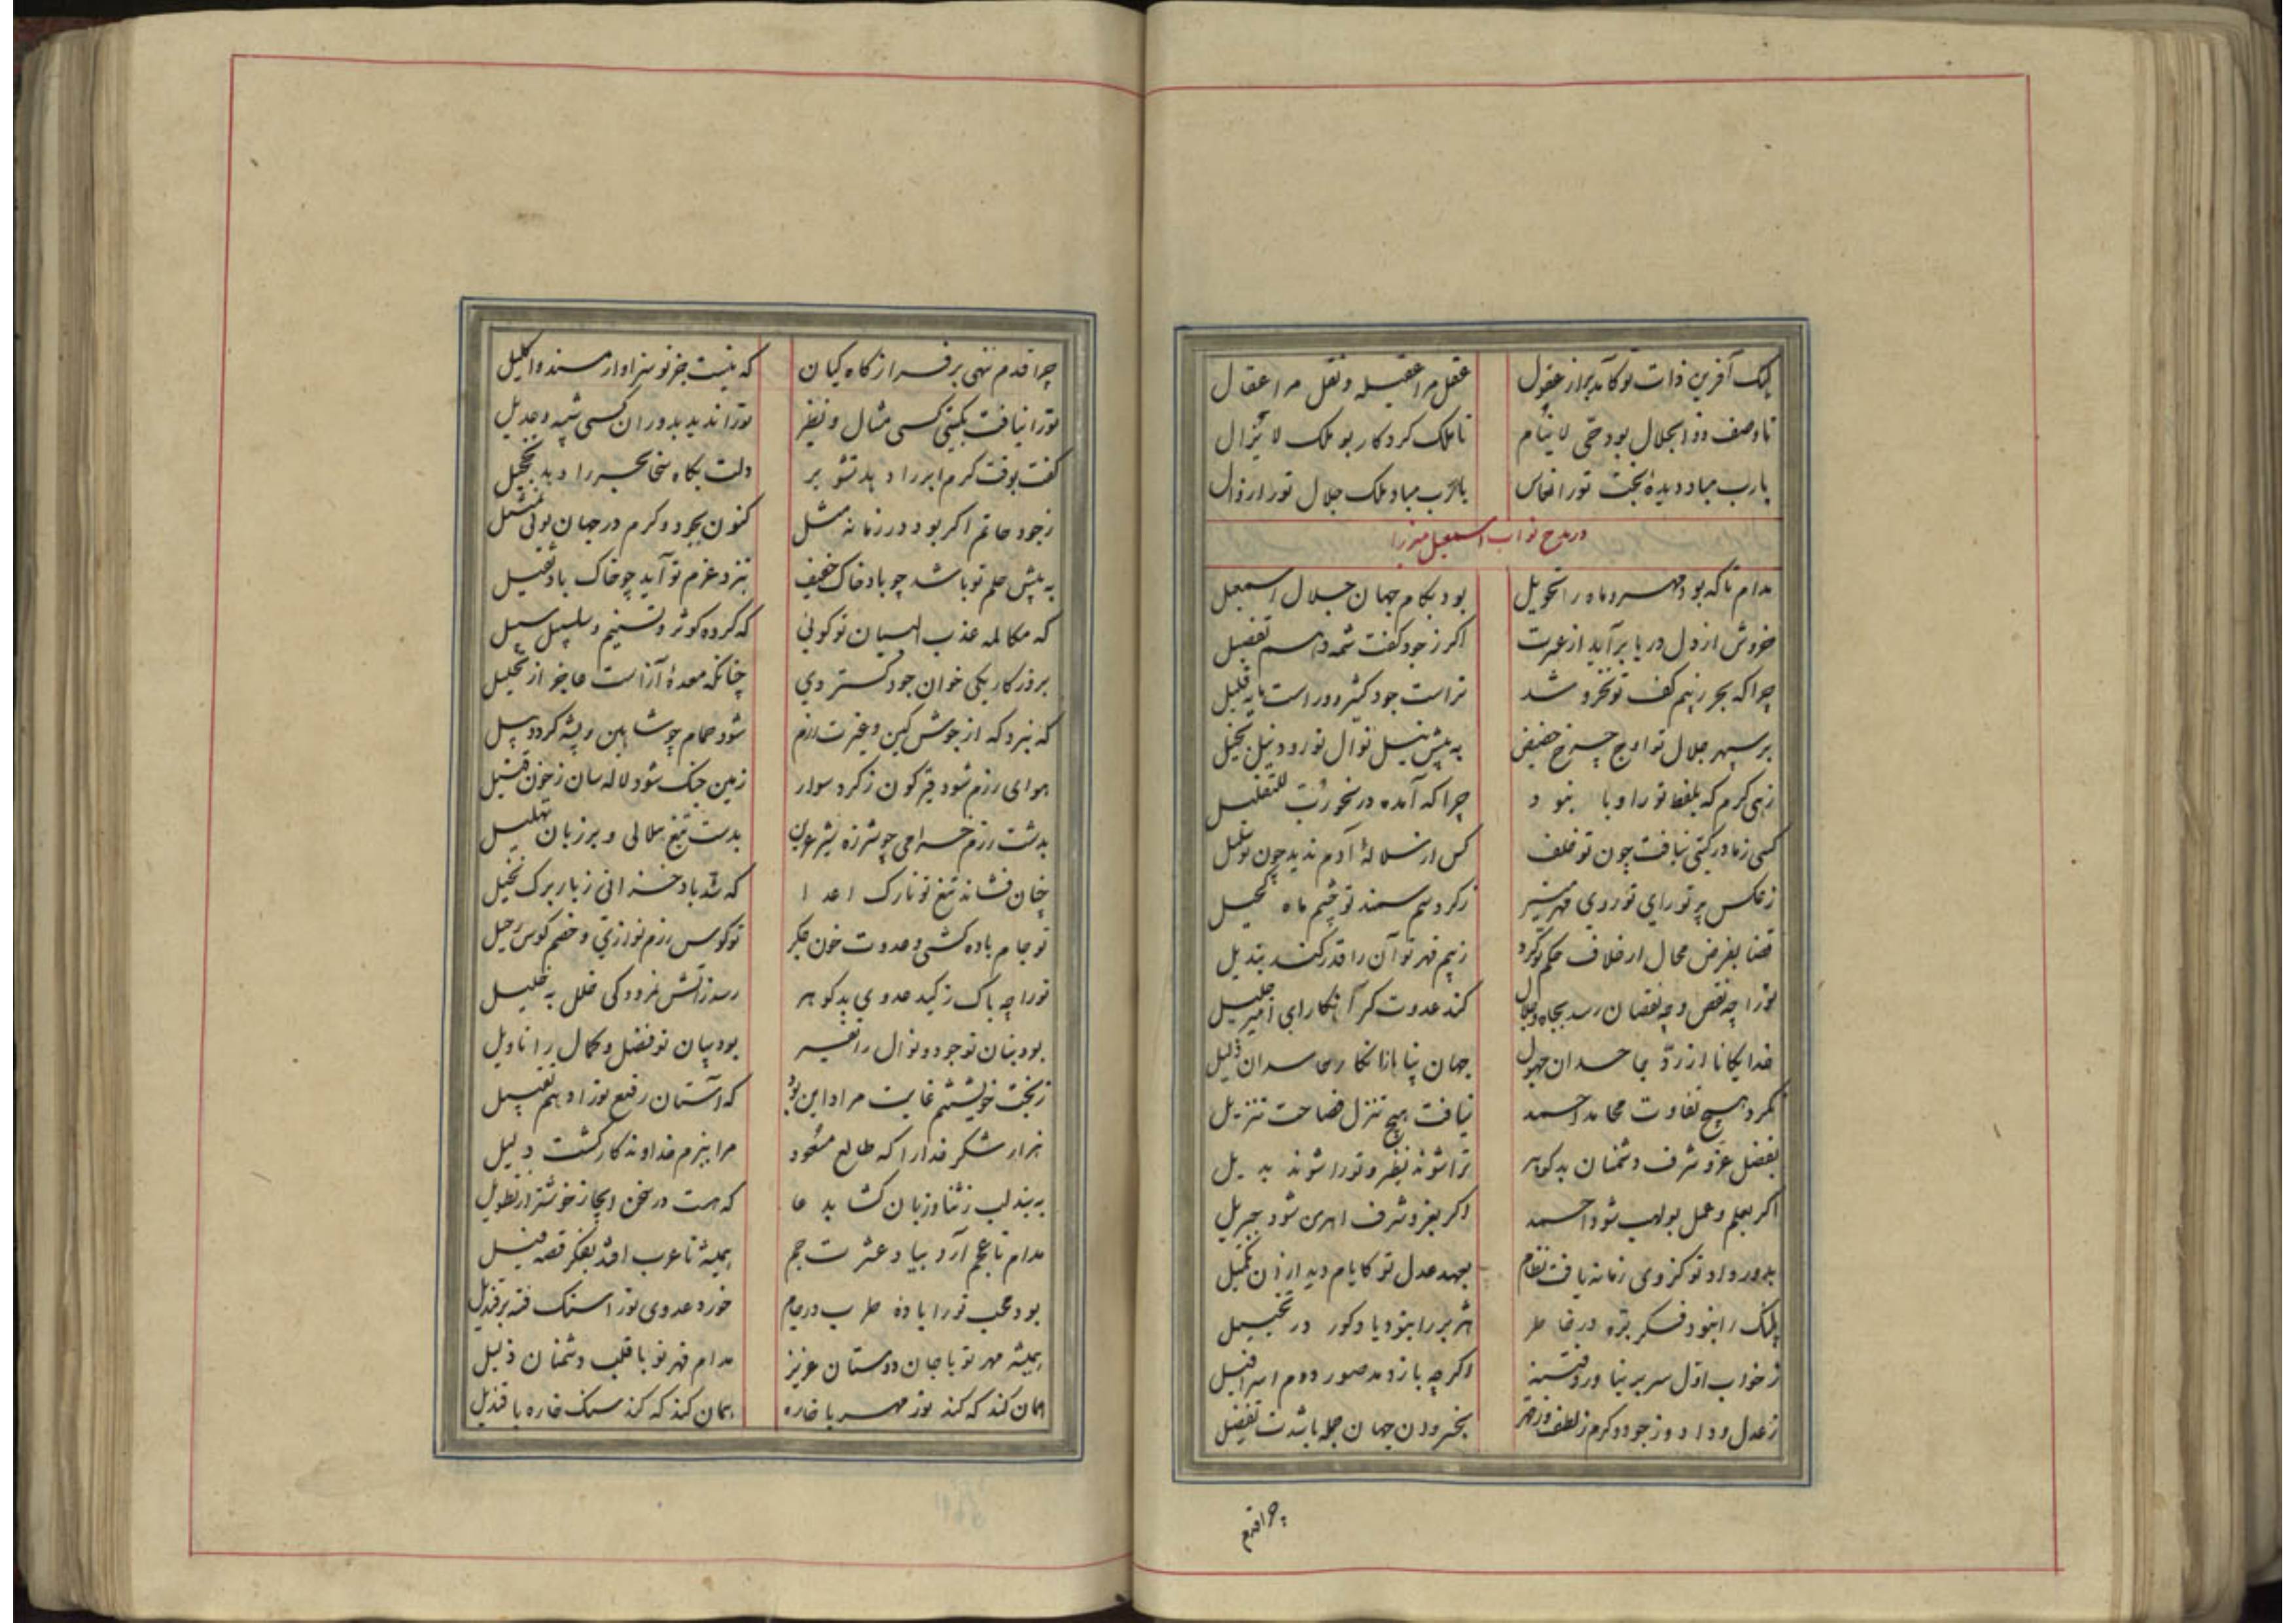 لیک آفرین ذات تو کآمد بر از عقول عقل مرا عقیله و نقل مرا عقال
تا وصف ذوالجلال بود حی لاینام تا ملک کردکار بود ملک لایزال
یارب مباد دیدهٔ بخت تو را نعاس یارب مباد ملک جلال تو را زوال
در مدح نواب اسمعیل میرزا
مدام تا که بود مهر و ماه را تحویل بود بکام جهان جلال اسمعیل
خروش از دل دریا برآید از غیرت اگر ز جود کفت شمه دهم تفصیل
چرا که بحر ز یم کف تو شد تراست جود کثیر و راست پایه قلیل
بر سپهر جلال تو اوج چرخ حضیض به پیش نیل نوال تو رود نیل بخیل
زهی کرم که بلفظ تو را و با نبود چرا که آمده در للتقلیل
کسی ز مادر کیتی نیافت چون تو خلف کس از سلالهٔ آدم ندید چون تو سلیل
ز عکس پرتو رای تو روی مهر منیر ز کرد سم سمند تو چشم ماه کحیل
قضا بفرض محال ار خلاف حکم تو کرد ز بیم قهر تو آن را قدر کند تبدیل
تو را چه نقص و چه نقصان رسد بجاه و جلال کند عدوت کر انکار ای امیر جلیل
خدایکانا از رد حاسدان جهول جهان پناها از انکار حاسدان ذلیل
نکرد هیچ تفاوت محامد احمد نیافت هیچ تنزل فصاحت تنزیل
بفضل عز و شرف دشمنان بدکوهر ترا شوند نظیر و تو را شوند بدیل
اگر بعلم و عمل بولهب شود احمد اگر بعز و شرف اهرمن شود جبریل
بدور داد تو کز وی زمانه یافت نظام بعهد عدل تو کایام دید از آن تکمیل
پلنک را نبود فکر بره در خاطر هژبر را نبود یاد کور در تخییل
ز خواب اول سر بر نیاورد فتنه اگر چه باز دمد صور دوم اسرافیل
ز عدل و داد و ز جود و کرم ز لطف و ز قهر بخسروان جهان جمله باشدت تفضیل
چرا قدم
چرا قدم ننهی بر فراز کاه کیان که نیست جز تو سزاوار مسند و اکلیل
تو را نیافت بکیتی کسی مثال و نظیر تو را ندید بدوران کسی شبیه و عدیل
کفت بوقت کرم ابر را دهد تشویر دلت بکاه سخا بحر را دهد تخجیل
ز جود حاتم اگر بود در زمانه مثل کنون بجود و کرم در جهان تویی تمثیل
به پیش حلم تو باشد چو باد خاک خفیف بنزد عزم تو آید چو خاک باد ثقیل
که مکالمه عذب البیان تو کوئی که کرده کوثر و تسنیم و سلسبیل سبیل
بروزکار یکی خوان جود کستردی چنانکه معدهٔ آز است عاجز از تحلیل
که نبرد که از جوش کین و غیرت رزم شود حمام چو شاهین و پشه کردد پیل
هوای رزم شود قیرکون ز کرد سوار زمین جنک شود لاله سان ز خون قتیل
بدشت رزم خرامی چو شرزه شیر عرین بدست تیغ هلالی و بر زبان تهلیل
چنان فشاند تیغ تو تارک اعدا که تندباد خزانی ز بار برک نخیل
تو جام باده کشی و عدوت خون جکر تو کوس رزم نوازی و خصم کوس رحیل
تو را چه باک ز کید عدوی بدکوهر رسد ز آتش نمرود کی خلل به خلیل
بود بنان تو جود و نوال را تفسیر بود بیان تو فضل و کمال را تاویل
ز بخت خویشتنم غایت مراد این بود که آستان رفیع تو را دهم تقبیل
هزار شکر خدا را که طالع مسعود مرا ببزم خداوندکار کشت دلیل
به بند لب ز ثنا و زبان کشا بدعا که هست در سخن ایجاز خوشتر از تطویل
مدام تا عجم آرد بیاد عشرت جم همیشه تا عرب افتد بفکر قصه فیل
بود محب تو را باده طرب در جام خورد عدوی تو را سنک فتنه بر قندیل
همیشه مهر تو با جان دوستان عزیز مدام قهر تو با قلب دشمنان ذلیل
همان کند که کند نور مهر با خاره همان کند که کند سنک خاره با قندیل